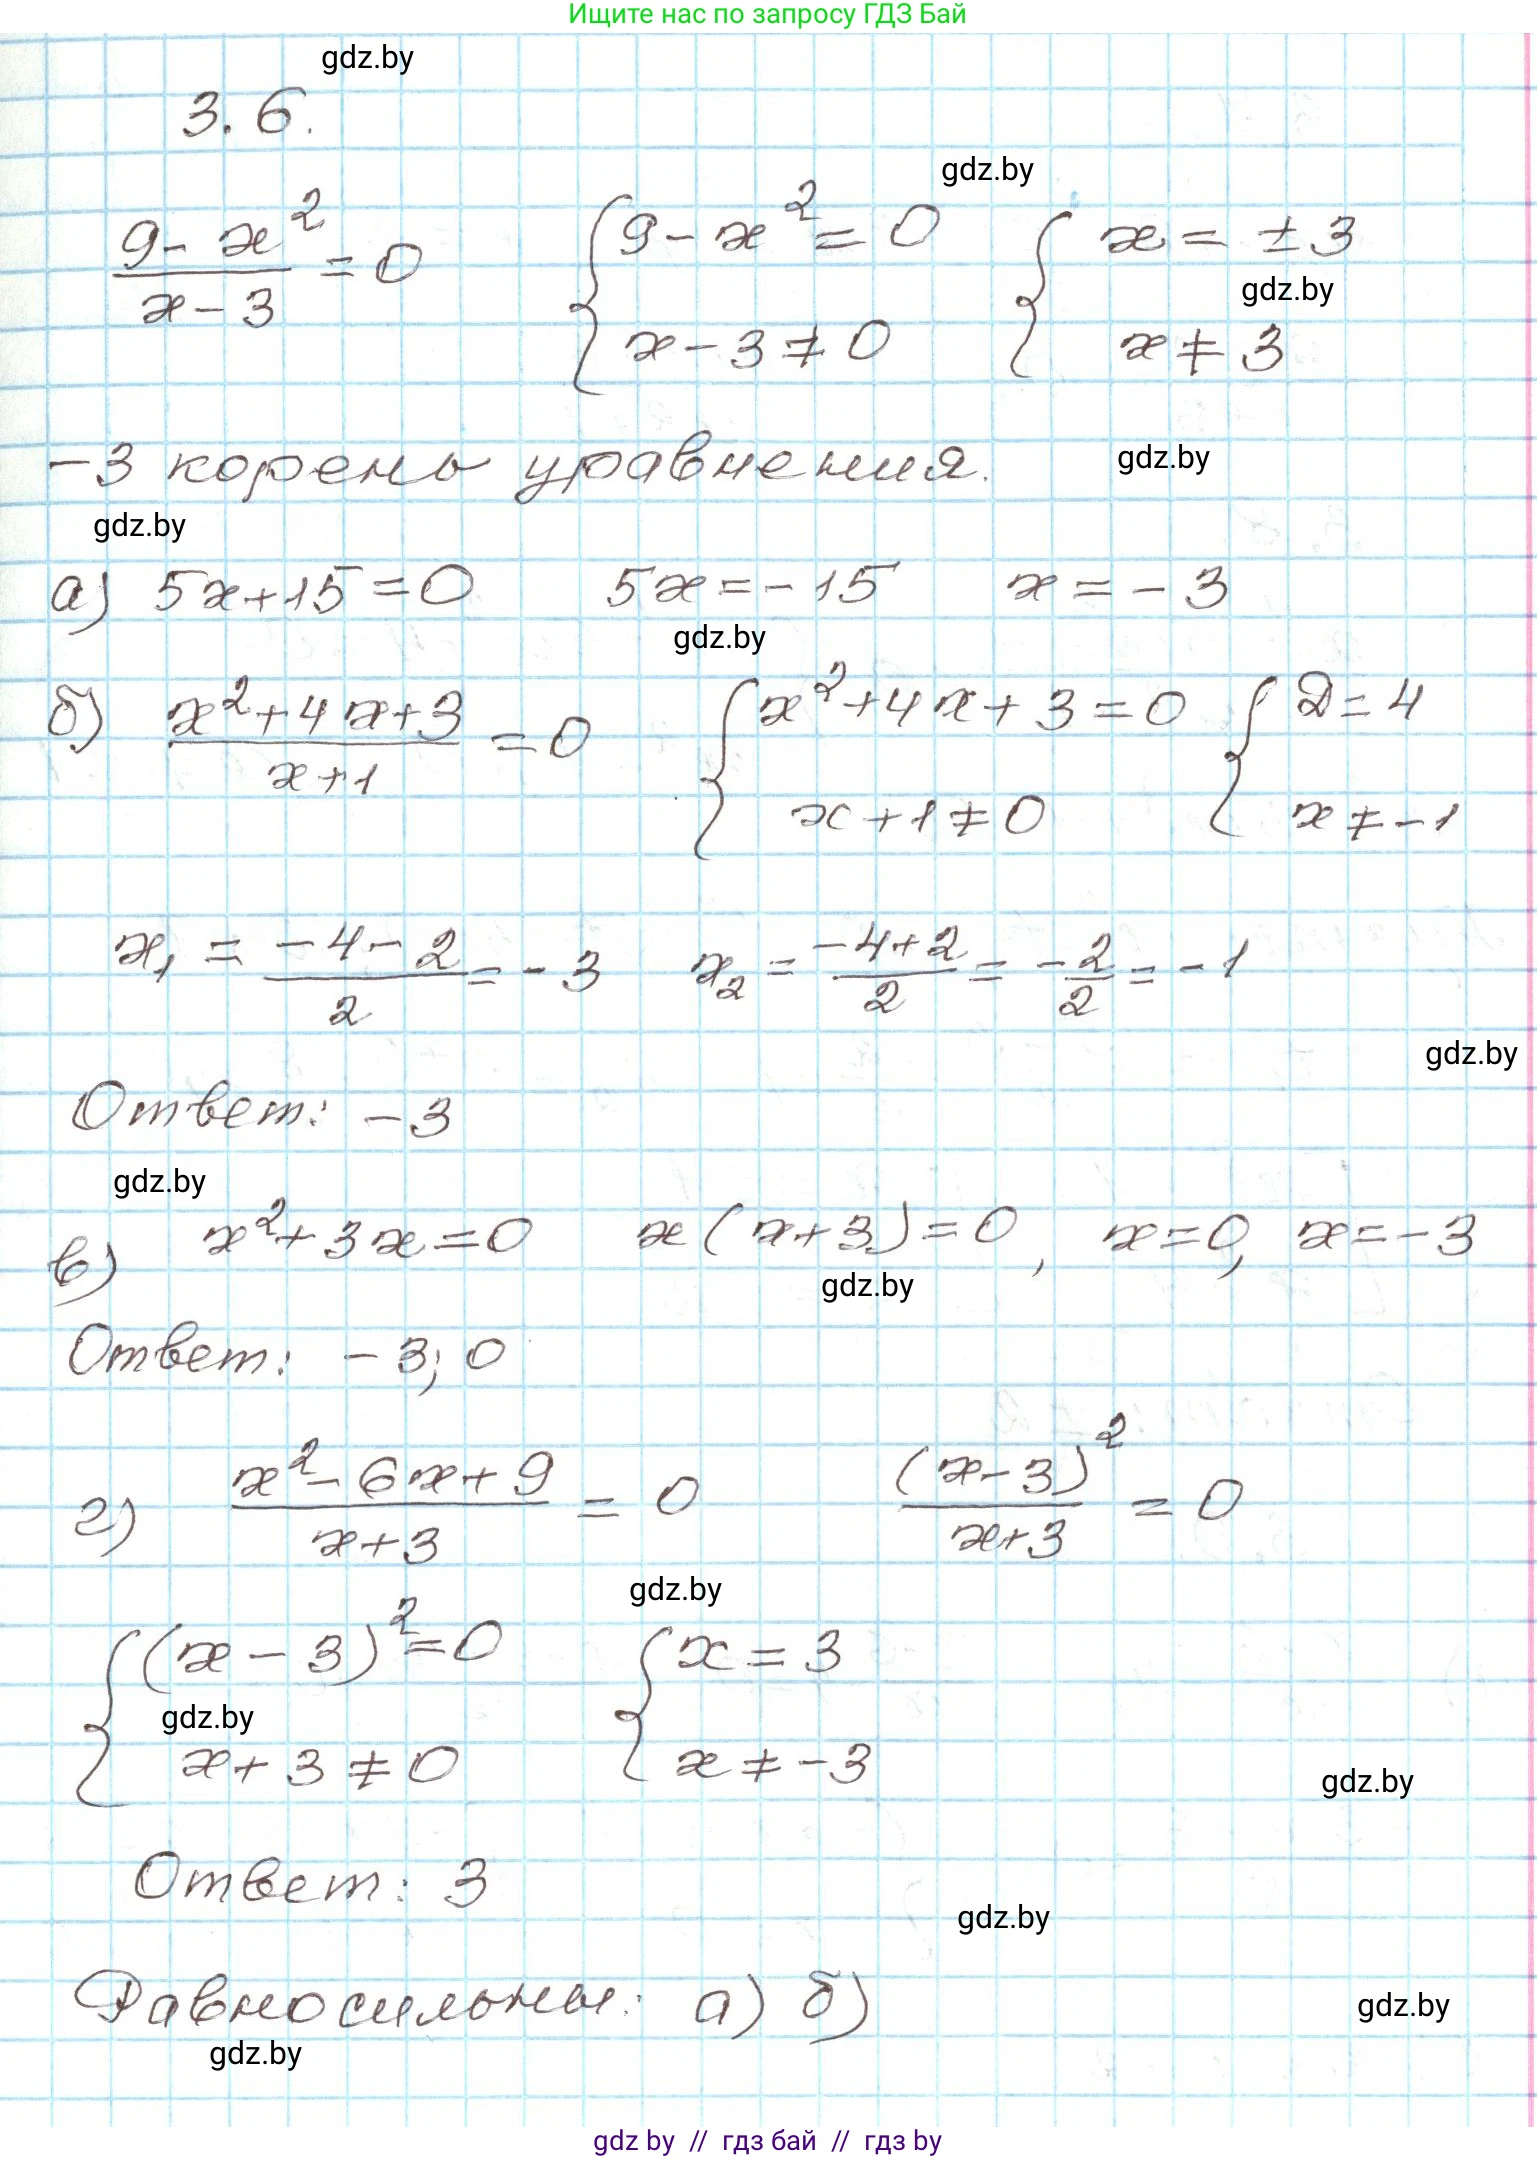 Ищите нас по запросу ГДЗ Бай
gdz.by
3.6.
gdz.by
(9-x²)/(x-3) = 0   { 9-x² = 0   x-3 ≠ 0   { x = ±3   x ≠ 3
gdz.by
-3 корень уравнения.
gdz.by
gdz.by
а) 5x+15=0   5x=-15   x=-3
gdz.by
б) (x²+4x+3)/(x+1) = 0   { x²+4x+3=0   x+1≠0   { D=4   x≠-1
x₁ = (-4-2)/2 = -3   x₂ = (-4+2)/2 = -2/2 = -1
gdz.by
Ответ: -3
gdz.by
в) x²+3x=0   x(x+3)=0, x=0, x=-3
gdz.by
Ответ: -3; 0
г) (x²-6x+9)/(x+3) = 0   (x-3)²/(x+3) = 0
gdz.by
{ (x-3)²=0   x+3≠0   { x=3   x≠-3
gdz.by
gdz.by
Ответ: 3
gdz.by
Равносильны: а) б)
gdz.by
gdz.by
gdz by // гдз бай // гдз by